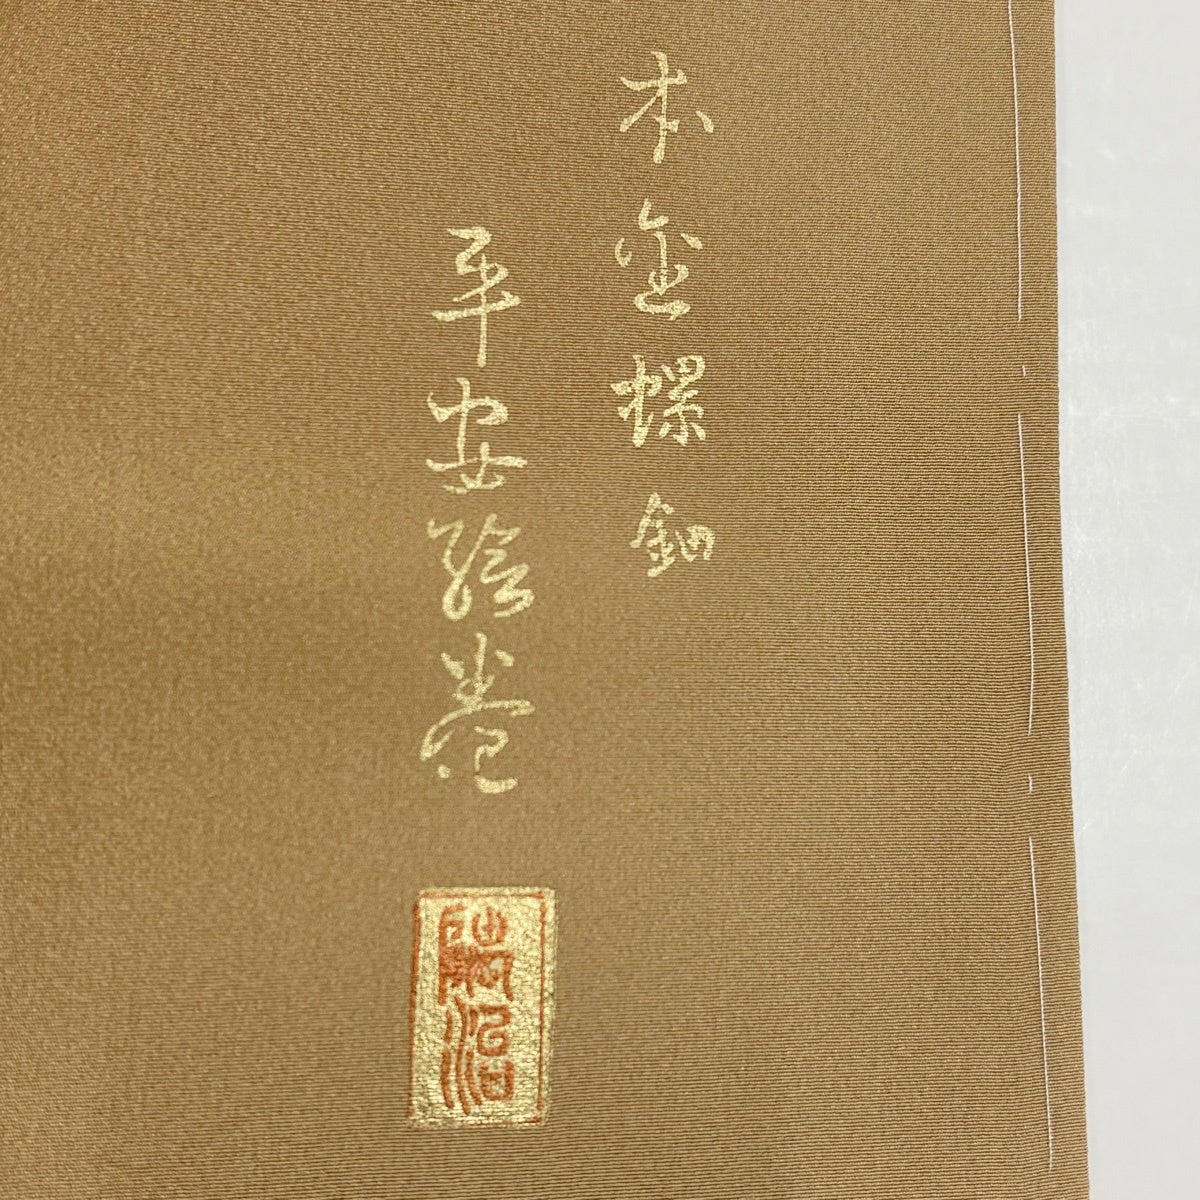 本金螺鈿
平安絵巻
陶治